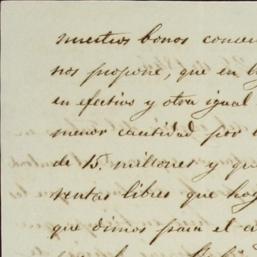 nuestros bonos
nos propone, que en
en efectivo y otra igual
menor cantidad por
de 15. millones y que
rentas libres que hoy
que dimos para el